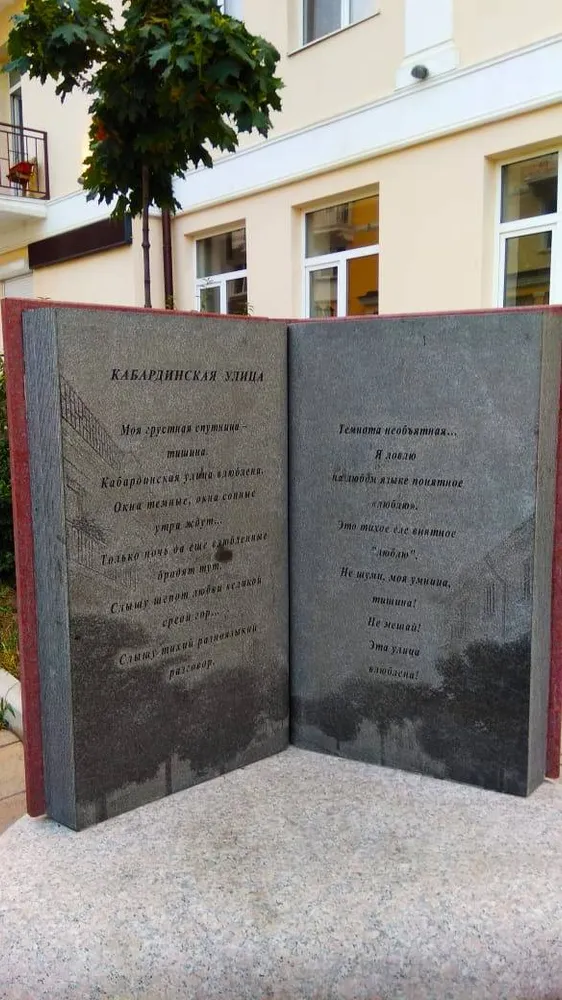 КАБАРДИНСКАЯ УЛИЦА
Моя грустная спутница –
тишина.
Кабардинская улица влюблена.
Окна темные, окна сонные
утра ждут...
Только ночь да еще влюбленные
бродят тут.
Слышу шепот любви великой
среди гор...
Слышу тихий разноязыкий
разговор.
Темнота необъятная...
Я ловлю
на любом языке понятное
«люблю».
Это тихое еле внятное
"люблю".
Не шуми, моя умница,
тишина!
Не мешай!
Эта улица
влюблена!